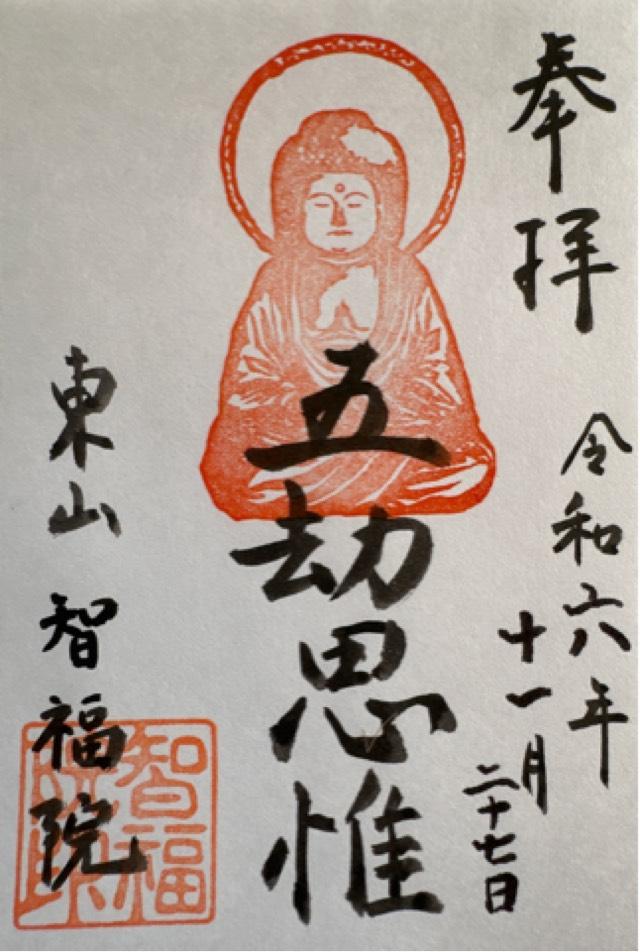 奉拝
令和六年
十一月
二十七日
五劫思惟
東山 智福院
智福
院印